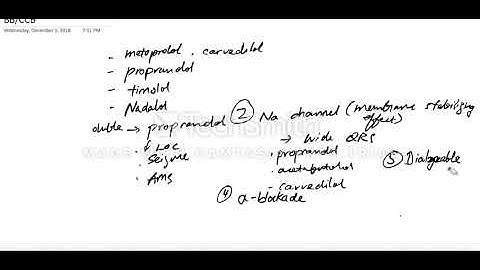 BB/CCB
Wednesday, December 5, 2018 7:51 PM
- metoprolol . carvedilol
- propranolol
- timolol
- Nadolol
② Na channel (membrane stabilizing effect)
→ propranolol
↓ LOC
Seizure
AMS
→ wide QRS
. propranolol
. acebutolol
- carvedilol
④ α-blockade
⑤ Dialyzable
TechSmith